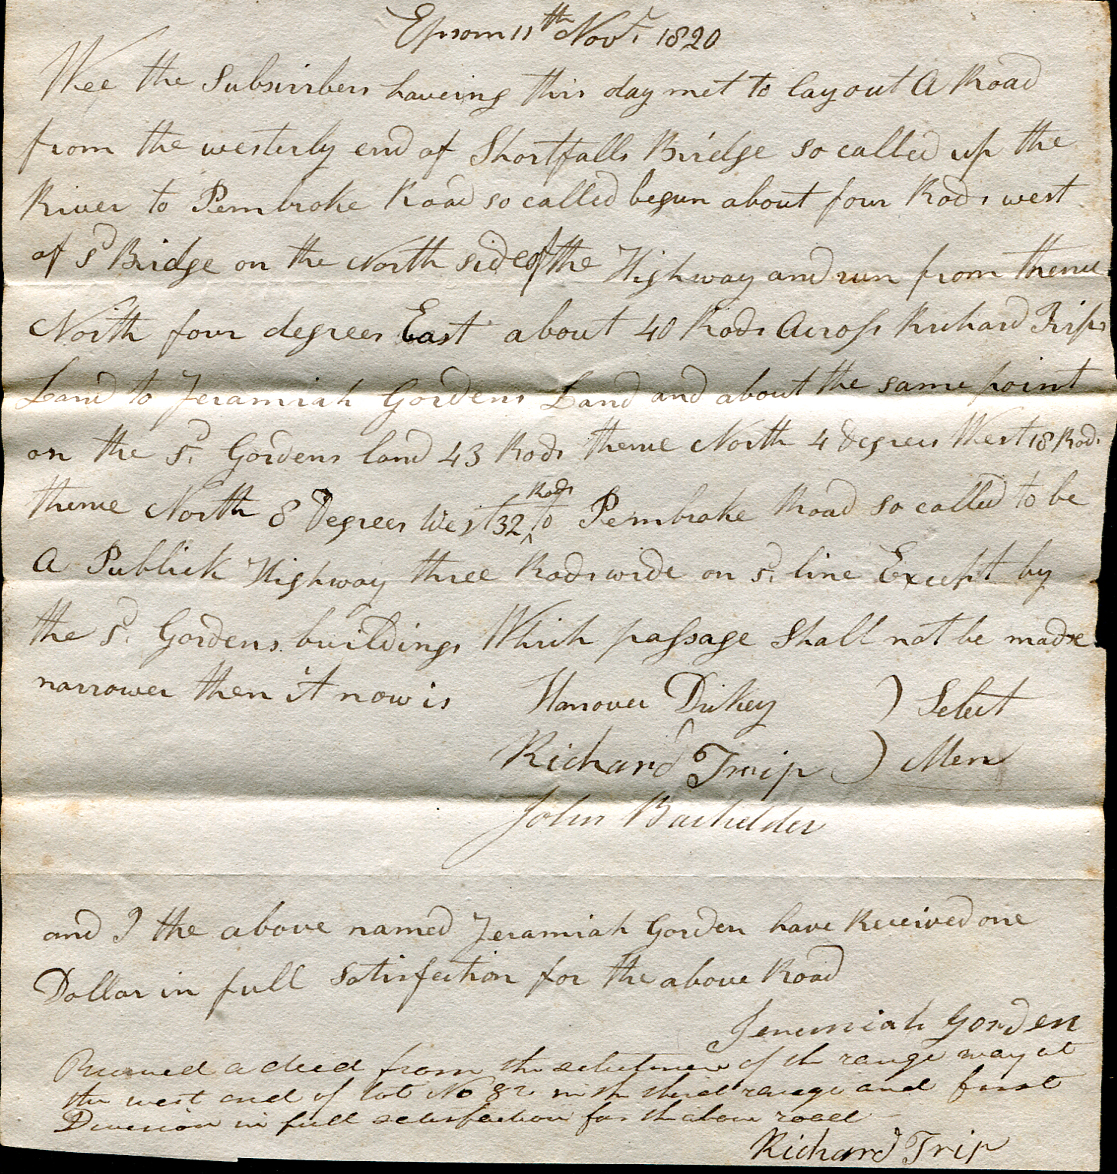 Epsom 11th Novr 1820
Wee the Subscribers haveing this day met to layout A Road
from the westerly end of Shortfalls Bridge so called up the
River to Pembroke Road so called begun about four Rods west
of sd Bridge on the North side of the Highway and run from thence
North four degrees East about 40 Rods Across Richard Trips
Land to Jeramiah Gordens Land and about the same point
on the sd Gordens land 43 Rods thence North 4 degrees West 18 Rods
thence North 8 Degrees West 32 Rods to Pembroke Road so called to be
A Publick Highway three Rods wide on sd line Except by
the sd Gordens buildings Which passage Shall not be made
narrower then it now is Hanover Dickey ) Select
Richard Tripp ) Men
John Bachelder
and I the above named Jeramiah Gorden have Received one
Dollar in full Satisfection for the above Road
Jeremiah Gorden
Received a deed from the selectmen of the range way at
the west end of lot No 82 in the third range and first
Division in full satisfaction for the above road
Richard Trip